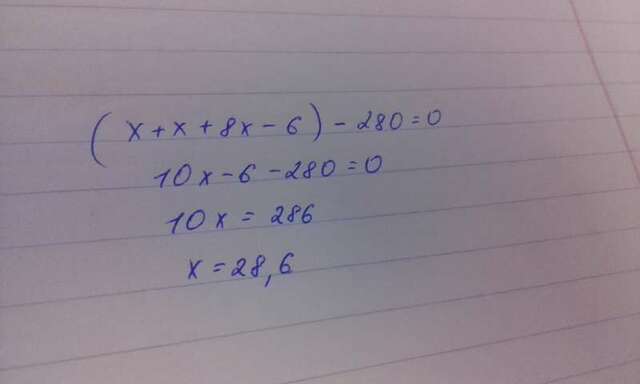 (x + x + 8x - 6) - 280 = 0
10x - 6 - 280 = 0
10x = 286
x = 28,6